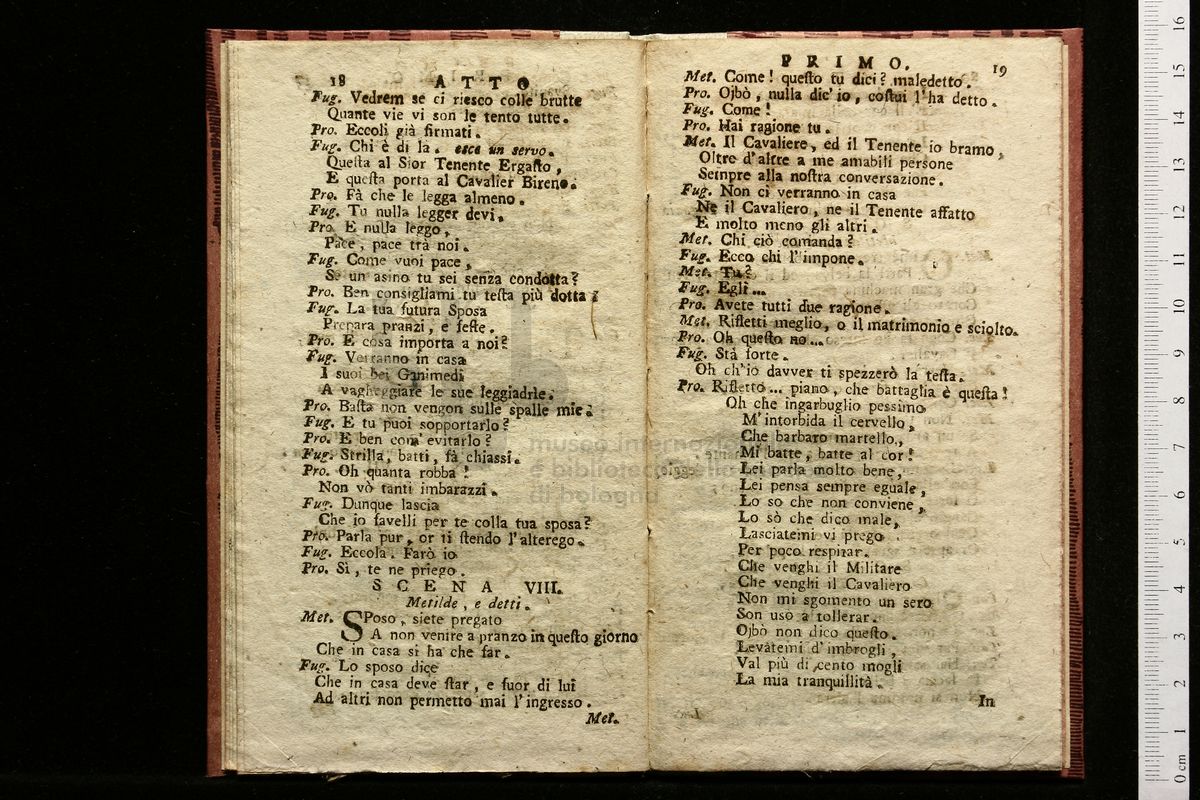 18 ATTO
Fug. Vedrem se ci riesco colle brutte
Quante vie vi son le tento tutte.
Pro. Eccoli già firmati.
Fug. Chi è di la. esce un servo.
Questa al Sior Tenente Ergasto,
E questa porta al Cavalier Bireno.
Pro. Fà che le legga almeno.
Fug. Tu nulla legger devi.
Pro. E nulla leggo,
Pace, pace trà noi.
Fug. Come vuoi pace,
Se un asino tu sei senza condotta?
Pro. Ben consigliami tu testa più dotta!
Fug. La tua futura Sposa
Prepara pranzi, e feste.
Pro. E cosa importa a noi?
Fug. Verranno in casa
I suoi bei Ganimedi
A vagheggiare le sue leggiadrie.
Pro. Basta non vengon sulle spalle mie.
Fug. E tu puoi sopportarlo?
Pro. E ben com' evitarlo?
Fug. Strilla, batti, fà chiassi.
Pro. Oh quanta robba!
Non vò tanti imbarazzi.
Fug. Dunque lascia
Che io favelli per te colla tua sposa?
Pro. Parla pur, or ti stendo l'alterego.
Fug. Eccola. Farò io
Pro. Sì, te ne priego.
SCENA VIII.
Metilde, e detti.
Met. SPoso, siete pregato
A non venire a pranzo in questo giorno
Che in casa si ha che far.
Fug. Lo sposo dice
Che in casa deve star, e fuor di lui
Ad altri non permetto mai l'ingresso.
Met.
PRIMO. 19
Met. Come! questo tu dici? maledetto.
Pro. Ojbò, nulla dic' io, costui l'ha detto.
Fug. Come!
Pro. Hai ragione tu.
Met. Il Cavaliere, ed il Tenente io bramo,
Oltre d'altre a me amabili persone
Sempre alla nostra conversazione.
Fug. Non ci verranno in casa
Ne il Cavaliero, ne il Tenente affatto
E molto meno gli altri.
Met. Chi ciò comanda?
Fug. Ecco chi l'impone.
Met. Tu?
Fug. Egli...
Pro. Avete tutti due ragione.
Met. Rifletti meglio, o il matrimonio e sciolto.
Pro. Oh questo no...
Fug. Stà forte.
Oh ch'io davver ti spezzerò la testa.
Pro. Rifletto... piano, che battaglia è questa!
Oh che ingarbuglio pessimo
M'intorbida il cervello,
Che barbaro martello,
Mi batte, batte al cor!
Lei parla molto bene,
Lei pensa sempre eguale,
Lo so che non conviene,
Lo sò che dico male,
Lasciatemi vi prego
Per poco respirar.
Che venghi il Militare
Che venghi il Cavaliero
Non mi sgomento un sero
Son uso a tollerar.
Ojbò non dico questo.
Levatemi d'imbrogli,
Val più di cento mogli
La mia tranquillità.
In